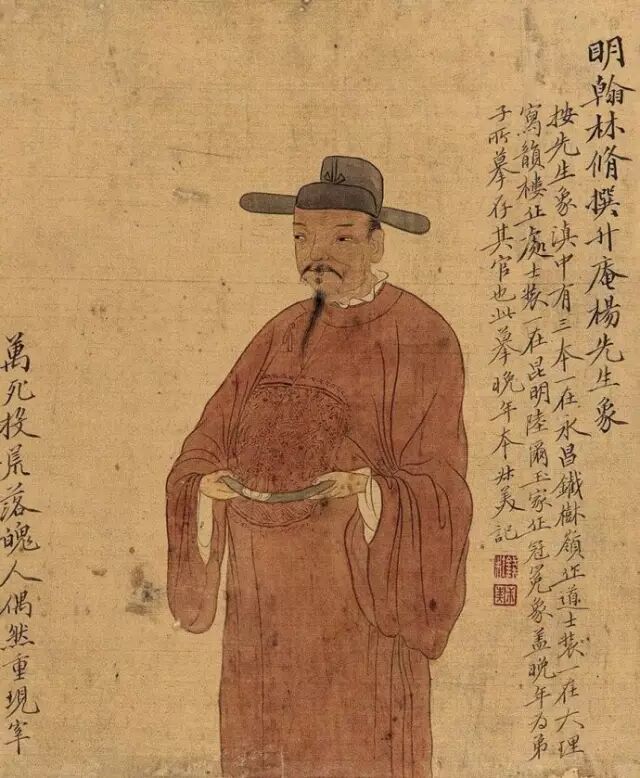 明翰林脩撰升庵楊先生象
按先生象滇中有三本一在永昌鐵樹嶺作道士裝一在大理
寫韻樓作處士裝一在昆明陸爾玉家作冠冕象蓋晚年為弟
子所摹存其官也此摹晚年本叔美記
萬死投荒落魄人偶然重現宰